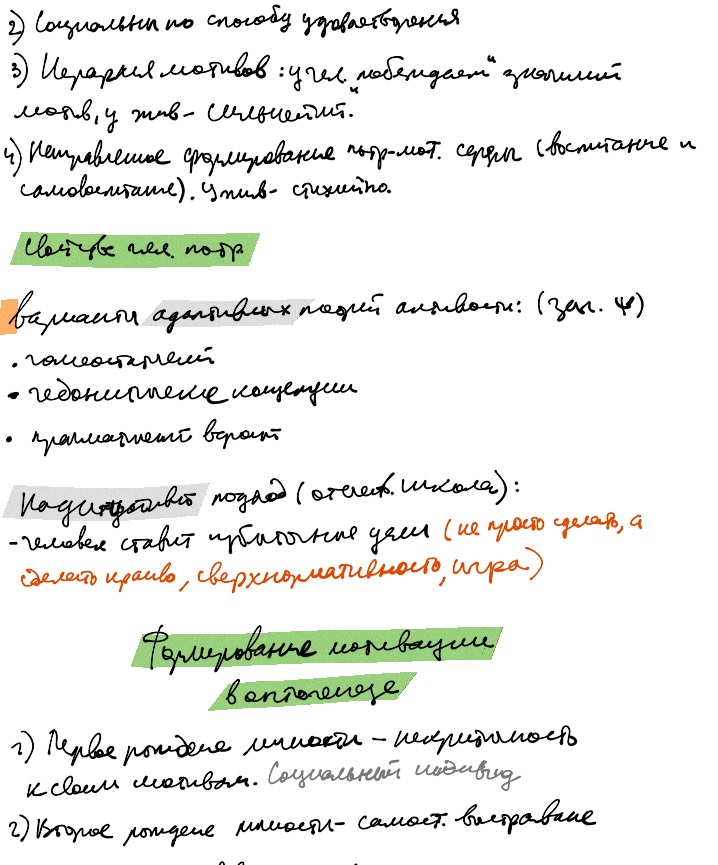 2) Социальны по способу удовлетворения
3) Иерархия мотивов: у чел. "побеждает" значимый
мотив, у жив - сильнейший.
4) Направленное формирование потр-мот. сферы (воспитание и
самовоспитание). У жив - стихийно.
Свойства чел. потр
Варианты адаптивных теорий активности: (зап. Ψ)
• гомеостатический
• гедонистические концепции
• прагматический вариант
подход (отечеств. школа):
- человек ставит избыточные цели (не просто сделать, а
сделать красиво, сверхнормативность, игра)
Формирование мотивации
в онтогенезе
1) Первое рождение личности - некритичность
к своим мотивам. Социальный индивид
2) Второе рождение личности - самост. выстраивание